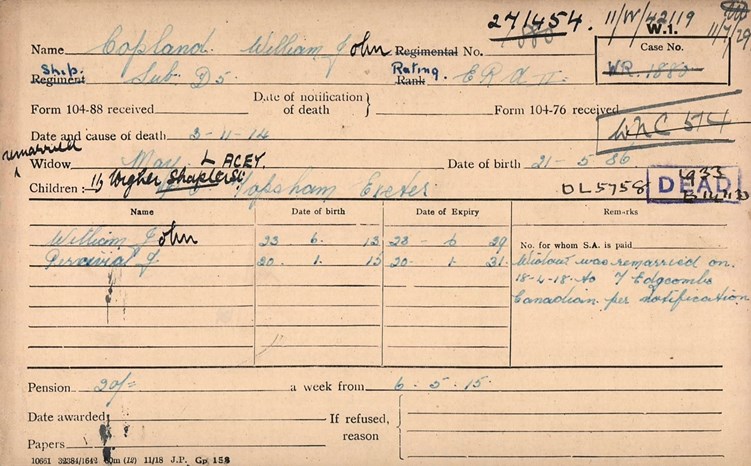 271454. 11/W/42/19
1880 11/7/29
Name Copland. William John Regimental No. W.1.
Case No.
Ship. Regiment Sub. D5. Rating. Rank E R A II WR. 1880
Form 104-88 received Date of notification of death } Form 104-76 received
WNC 514
Date and cause of death 3-11-14
remarried
Widow May LACEY. Date of birth 21-5-86
Children: 11 Higher Shapter St Topsham Exeter DL5758 DEAD 1933
Name Date of birth Date of Expiry Remarks
William John 23 6 13 23 - 6 29 No. for whom S.A. is paid
Percival J. 20. 1. 15 20. 1 31. Widow was remarried on
18-4-18. to J Edgcombe
Canadian per notification
Pension 20/= a week from 6. 5. 15.
Date awarded If refused, reason {
Papers
10661 32384/1642 60m (12) 11/18 J.P. Gp 158